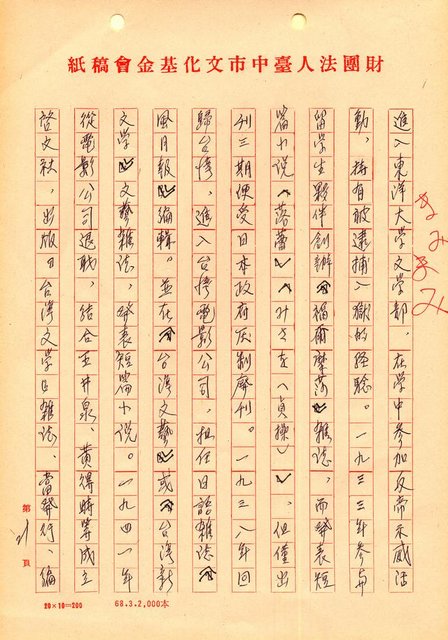 財團法人臺中市文化基金會稿紙
進入東洋大學文學部，在學中參加反帝示威活
動，持有被逮捕入獄的經驗。一九三三年參与
留學生夥伴創辦《福爾摩莎》雜誌，而發表短
篇小説〈落蕾〉〈みさを〉（貞操），但僅出
刊三期便受日本政府压制廢刊。一九三八年回
歸台湾，進入台湾電影公司，担任日語雜誌《
風月報》編輯。並在《台湾文藝》或《台湾新
文学》文藝雜誌，發表短篇小説。一九四一年
從電影公司退職，結合王井泉、黃得時等成立
啓文社，出版《台湾文学》雜誌，當發行、編
みさを
第21頁
20×10=200
68.3.2,000本